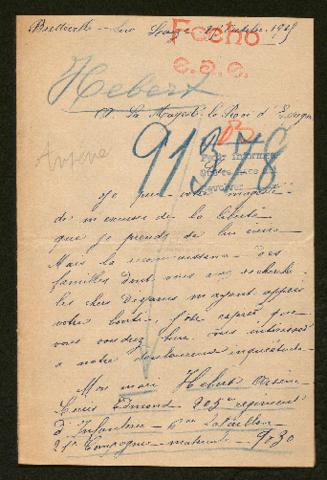 Fecho
e.a.e.
Hebert
A Sa Majesté le Roi d'Espagne
Arsène
91378
Je prie votre majesté
de m'excuser de la liberté
que je prends de lui écrire
Mais la reconnaissance des
familles dont vous avez recherché
les chers disparus m'ayant appris
votre bonté, j'ose espérer que
vous voudrez bien vous intéresser
à notre douloureuse inquiétude.
Mon mari Hebert Arsène
Edmond 205e régiment
d'Infanterie 6me bataillon
21e Compagnie matricule 9130